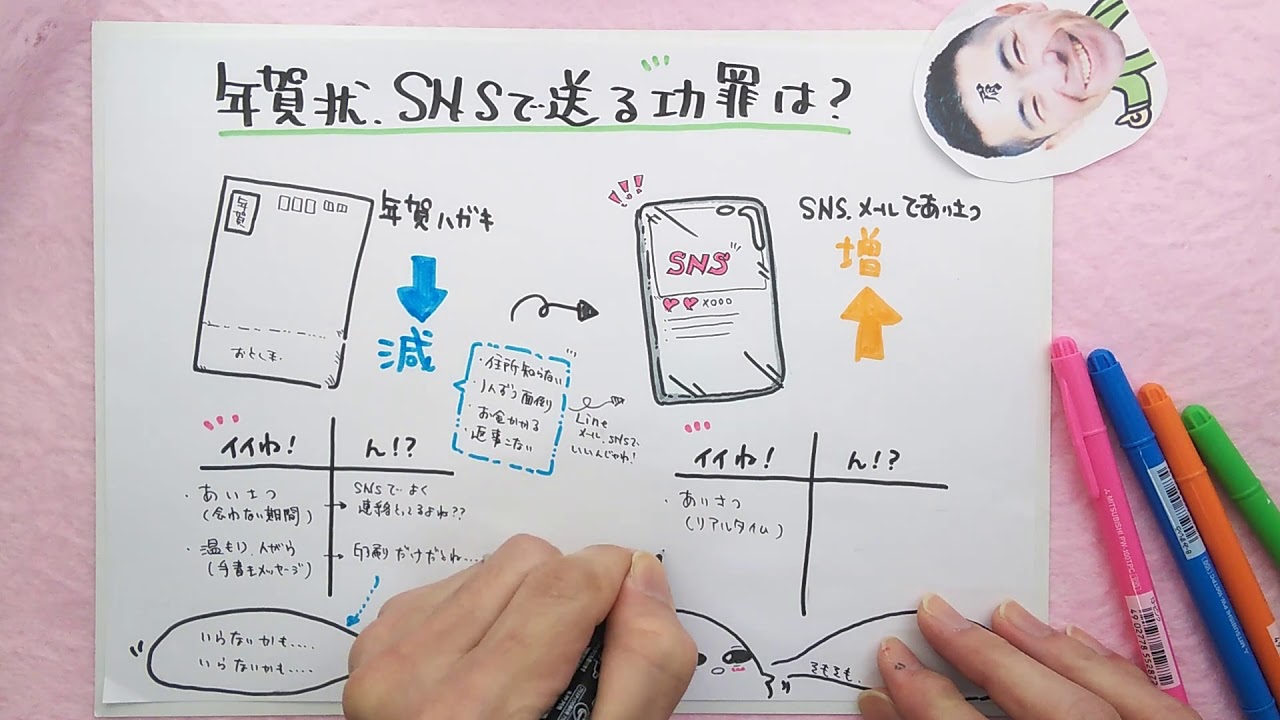 年賀状、SNSで送る功罪は?
層
年賀
年賀ハガキ
減
おとしま.
SNS
xooo
SNS.メールであいさつ
増
・住所知らない
・りんぎり面倒
・お金かかる
・返事こない
Line
メール、SNSで、
いいんじゃね!
イイね! ん!?
・あいさつ
(会わない期間)
SNSでよく
連絡とってるよね??
・温もり、人がら
(手書きメッセージ)
印刷だけだるね....
いらないかも....
いらないかも....
イイね! ん!?
・あいさつ
(リアルタイム)
そもそも、
MITSUBISHI PW-100TPC